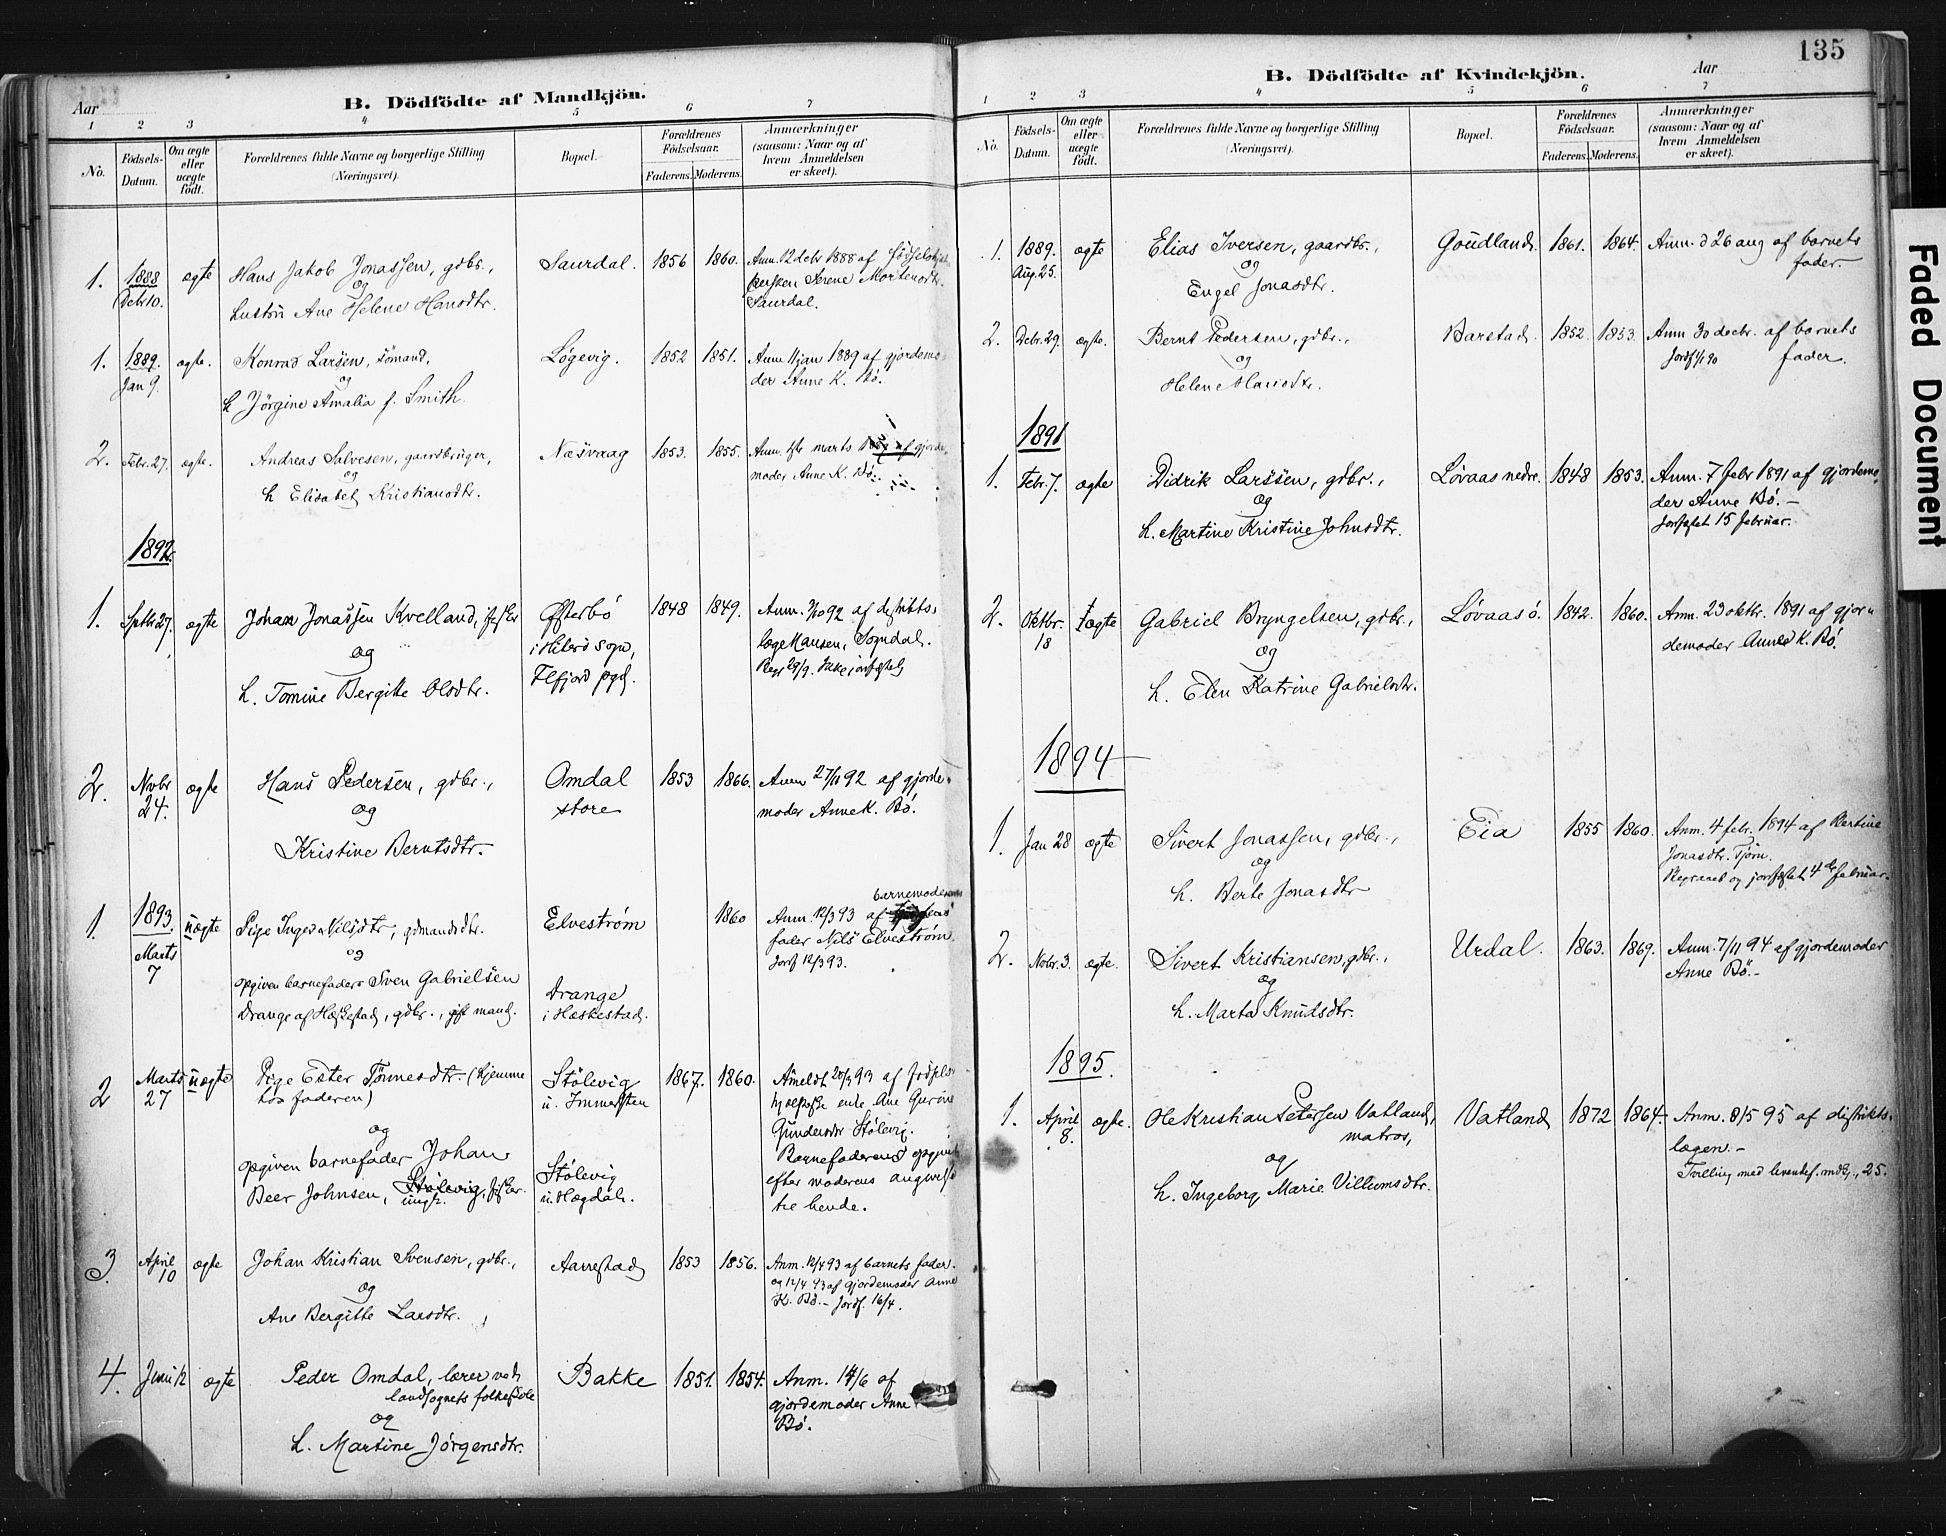 Aar
B. Dödfödte af Mandkjön.
1 2 3 4 5 6 7
No.
Födsels-
Datum.
Om ægte
eller
uægte
födt.
Forældrenes fulde Navne og borgerlige Stilling
(Næringsvei).
Bopæl.
Forældrenes
Födselsaar.
Faderens. Moderens.
Anmærkninger
(saasom: Naar og af
hvem Anmeldelsen
er skeet).
1. 1888 Debr 10. ægte
Hans Jakob Jonassen, gdbr.,
og
hustru Ane Helene Hansdtr.
Saurdal. 1856 1860.
Anm. 12 debr 1888 af
Serene Mortensdtr.
Saurdal.
1. 1889. Jan 9. ægte.
Konrad Larsen, sömand,
og
h Jörgine Amalia f. Smith.
Lögevig. 1852 1851.
Anm. 11 jan 1889 af gjordemo-
der Anne K. Bö.
2. Febr. 27. ægte.
Andreas Salvesen, gaardbruger,
og
h Elisabet Kristiansdtr.
Næsvaag 1853. 1855.
Anm. marts af gjorde
moder Anne K. Bö.
1892.
1. Septbr 27. ægte
Johan Jonassen Kvelland, fisker
og
h. Tomine Bergitte Olsdtr.
Østerbö
i Hiterö sogn,
Flefjord pgd.
1848 1849.
Anm. 7/10 92 af distrikts-
læge Hansen, Sogndal.
Begr 29/9. Ikke jordfæstet
2. Novbr 24. ægte
Hans Pedersen, gdbr.,
og
Kristine Berntsdtr.
Omdal
store
1853 1866.
Anm 27/11 92 af gjorde-
moder Anne K. Bö.
1. 1893. Marts 7 uægte
Pige Inger Nilsdtr, gdmandsdtr.
og
opgiven barnefader Sven Gabrielsen
Drange af Heskestad, gdbr., gift mand.
Elvestrøm
Drange
i Heskestad.
1860
barnemoderens
Anm. 12/3 93 af
fader Nils Elvestrøm.
Jordf 12/3 93.
2 Marts 27 uægte
Pige Ester Tönnesdtr. (hjemme
hos faderen)
og
opgiven barnefader Johan
Beer Johnsen, Stölevig, fisker.
ungk.
Stölevig
u. Immerstein
Stölevig
u. Hægdal.
1867. 1860.
Anmeldt 28/3 93 af fødsels
hjælperske enke Ane Gurine
Gundersdtr Stölevig.
Barnefaderens opgivet
efter moderens angivelse
til hende.
3. April 10 ægte
Johan Kristian Svensen, gdbr.,
og
Ane Bergitte Larsdtr.
Aarrestad 1853 1856.
Anm. 12/4 93 af barnets fader.
og 12/4 93 af gjordemoder Anne
K. Bö. - Jordf. 16/4.
4. Juni 12 ægte
Peder Omdal, lærer ved
landsognets folkeskole
og
h. Martine Jörgensdtr.
Bakke 1851. 1854.
Anm. 14/6 af
gjordemoder Anne
Bö.
135
B. Dödfödte af Kvindekjön.
Aar
1 2 3 4 5 6 7
No.
Födsels-
Datum.
Om ægte
eller
uægte
födt.
Forældrenes fulde Navne og borgerlige Stilling
(Næringsvei).
Bopæl.
Forældrenes
Födselsaar.
Faderens. Moderens.
Anmærkninger
(saasom: Naar og af
hvem Anmeldelsen
er skeet).
1. 1889. Aug. 25. ægte
Elias Iversen, gaardbr.,
og
Engel Jonasdtr.
Goudland. 1861. 1864.
Anm. d 26 aug af barnets
fader.
2. Debr. 29. ægte.
Bernt Pedersen, gdbr.,
og
Helene Hansdtr.
Barstad. 1852. 1853.
Anm 30 decbr. af barnets
fader.
1891
1. Febr. 7. ægte
Didrik Larssen, gdbr.,
og
h. Martine Kristine Johnsdtr.
Løvaas nedre. 1848 1853.
Anm. 7 febr 1891 af gjordemo-
der Anne Bö. -
Jordfæstet 15 februar.
2. Oktbr. 18 ægte
Gabriel Bryngelsen, gdbr.,
og
h. Elen Katrine Gabrielsdtr.
Løvaas ö. 1842. 1860.
Anm. 23 oktbr. 1891 af gjor-
demoder Anne K. Bö.
1894
1. Jan 28 ægte
Sivert Jonassen, gdbr.,
og
h. Berte Jonasdtr
Eia 1855 1860.
Anm. 4 febr. 1894 af Bertine
Jonasdtr. Tjörn.
Begravet og jordfæstet 4de februar.
2. Nobr. 3. ægte.
Sivert Kristiansen, gdbr.,
og
h. Marta Knudsdtr.
Urdal. 1863. 1869.
Anm. 7/11 94 af gjordemoder
Anne Bö. -
1895.
1. April 8. ægte.
Ole Kristian Petersen Vatland,
matros,
og
h. Ingeborg Marie Villumsdtr.
Vatland 1872 1864.
Anm. 8/5 95 af distrikts-
lægen. -
Tvilling med levendef. mdkj., 25.
Faded Document